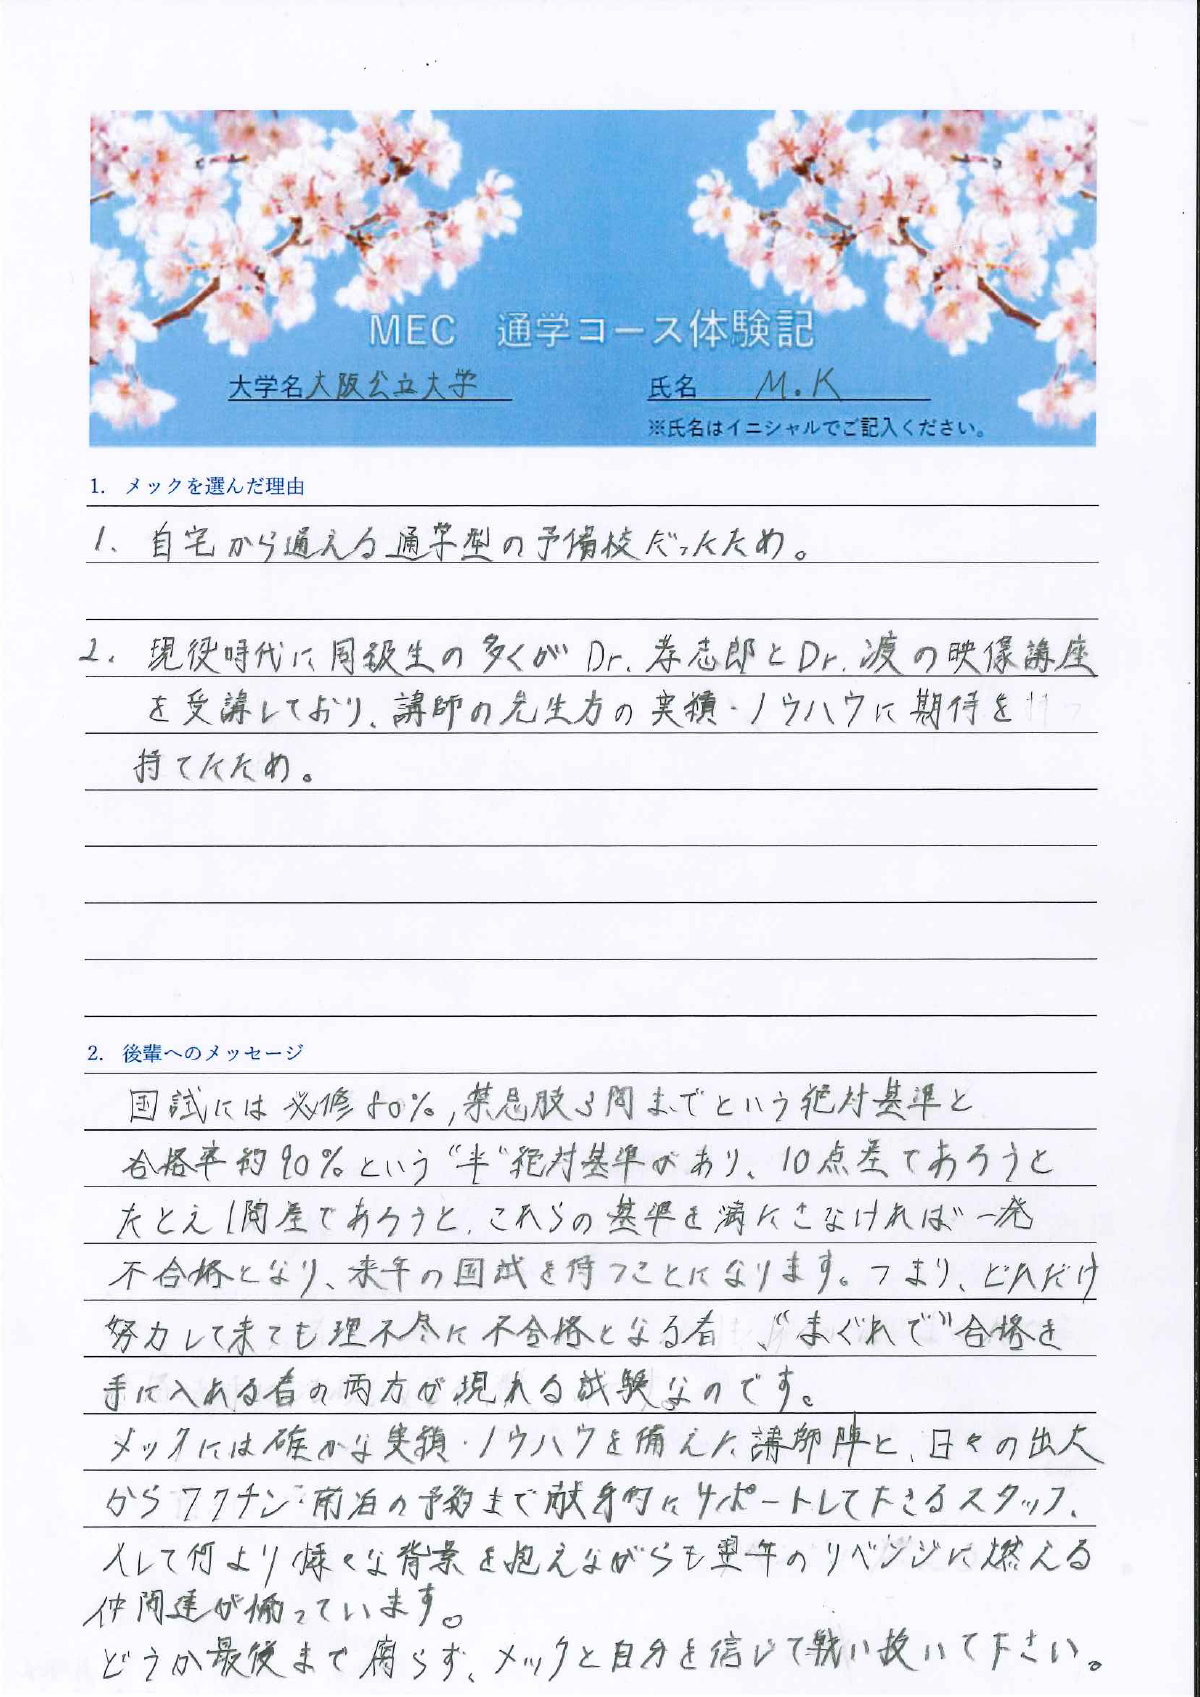 MEC 通学コース体験記
大学名 大阪公立大学
氏名 M.K
※氏名はイニシャルでご記入ください。
1. メックを選んだ理由
1. 自宅から通える通学型の予備校だったため。
2. 現役時代に同級生の多くが Dr. 孝志郎とDr. 渡の映像講座
を受講しており、講師の先生方の実績・ノウハウに期待を
持てたため。
2. 後輩へのメッセージ
国試には必修80%,禁忌肢3問までという絶対基準と
合格率約90%という"半"絶対基準があり、10点差であろうと
たとえ1問差であろうと、これらの基準を満たさなければ一発
不合格となり、来年の国試を待つことになります。つまり、どれだけ
努力して来ても理不尽に不合格となる者、"まぐれで"合格を
手に入れる者の両方が現れる試験なのです。
メックには確かな実績・ノウハウを備えた講師陣と、日々の出欠
からワクチン・前泊の予約まで献身的にサポートして下さるスタッフ、
そして何より様々な背景を抱えながらも翌年のリベンジに燃える
仲間達が揃っています。
どうか最後まで腐らず、メックと自分を信じて戦い抜いて下さい。